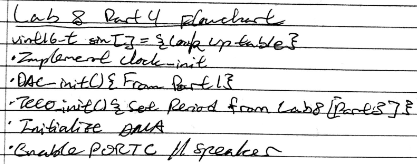 Lab 8 Part 4 Flowchart
uint16_t sin[] = {Look up table}
• Implement clock_init
• DAC_init() { From Part 1}
• TCC0_init() { Set Period from Lab8 [Part 3] }
• Initialize DMA
• Enable PORTC // Speaker